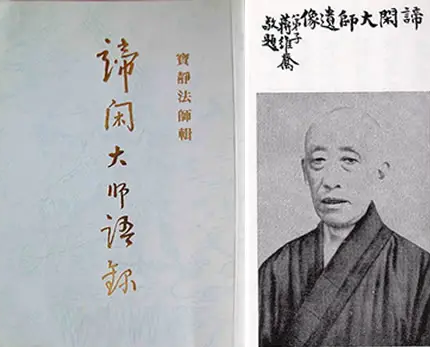 寶靜法師輯
諦閑大師語錄
諦閑大師遺像
弟子
蔣維喬
敬題